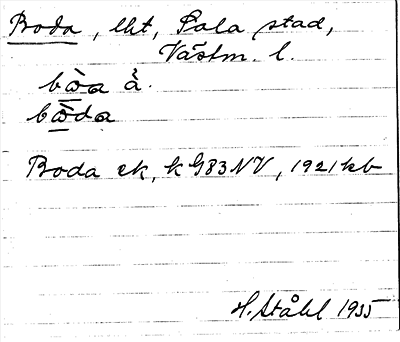 Boda, lht, Sala stad,
Västm. l.
bo̠̊̀a å̀.
bo̠̊̀da
Boda ek, k G83NV, 1921 kb
H. Ståhl 1935